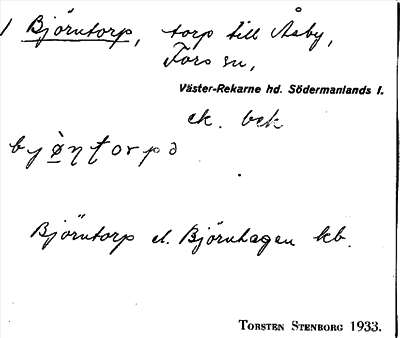 1 Björntorp, torp till Åsby,
Fors sn,
Väster-Rekarne hd. Södermanlands l.
ek. bek
bjø̀ŋtorpə
Björntorp el. Björnhagen kb.
TORSTEN STENBORG 1933.